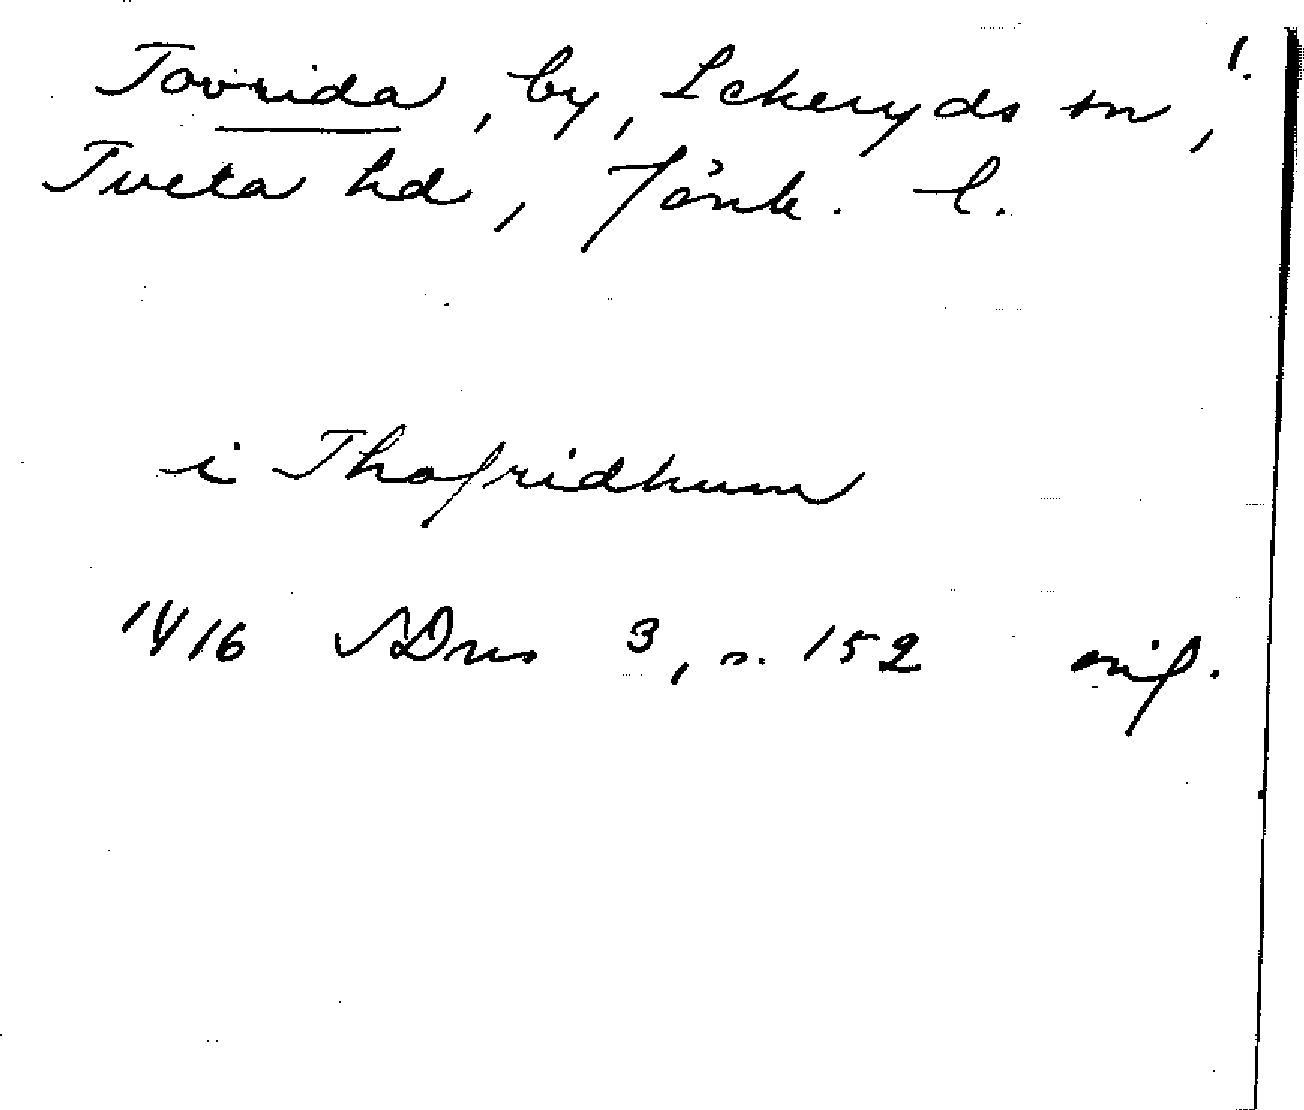 1.
Tovrida, by, Lekeryds sn,
Tveta hd, Jönk. l.
i Thofridhum
1416 SDns 3, s. 152 mf.